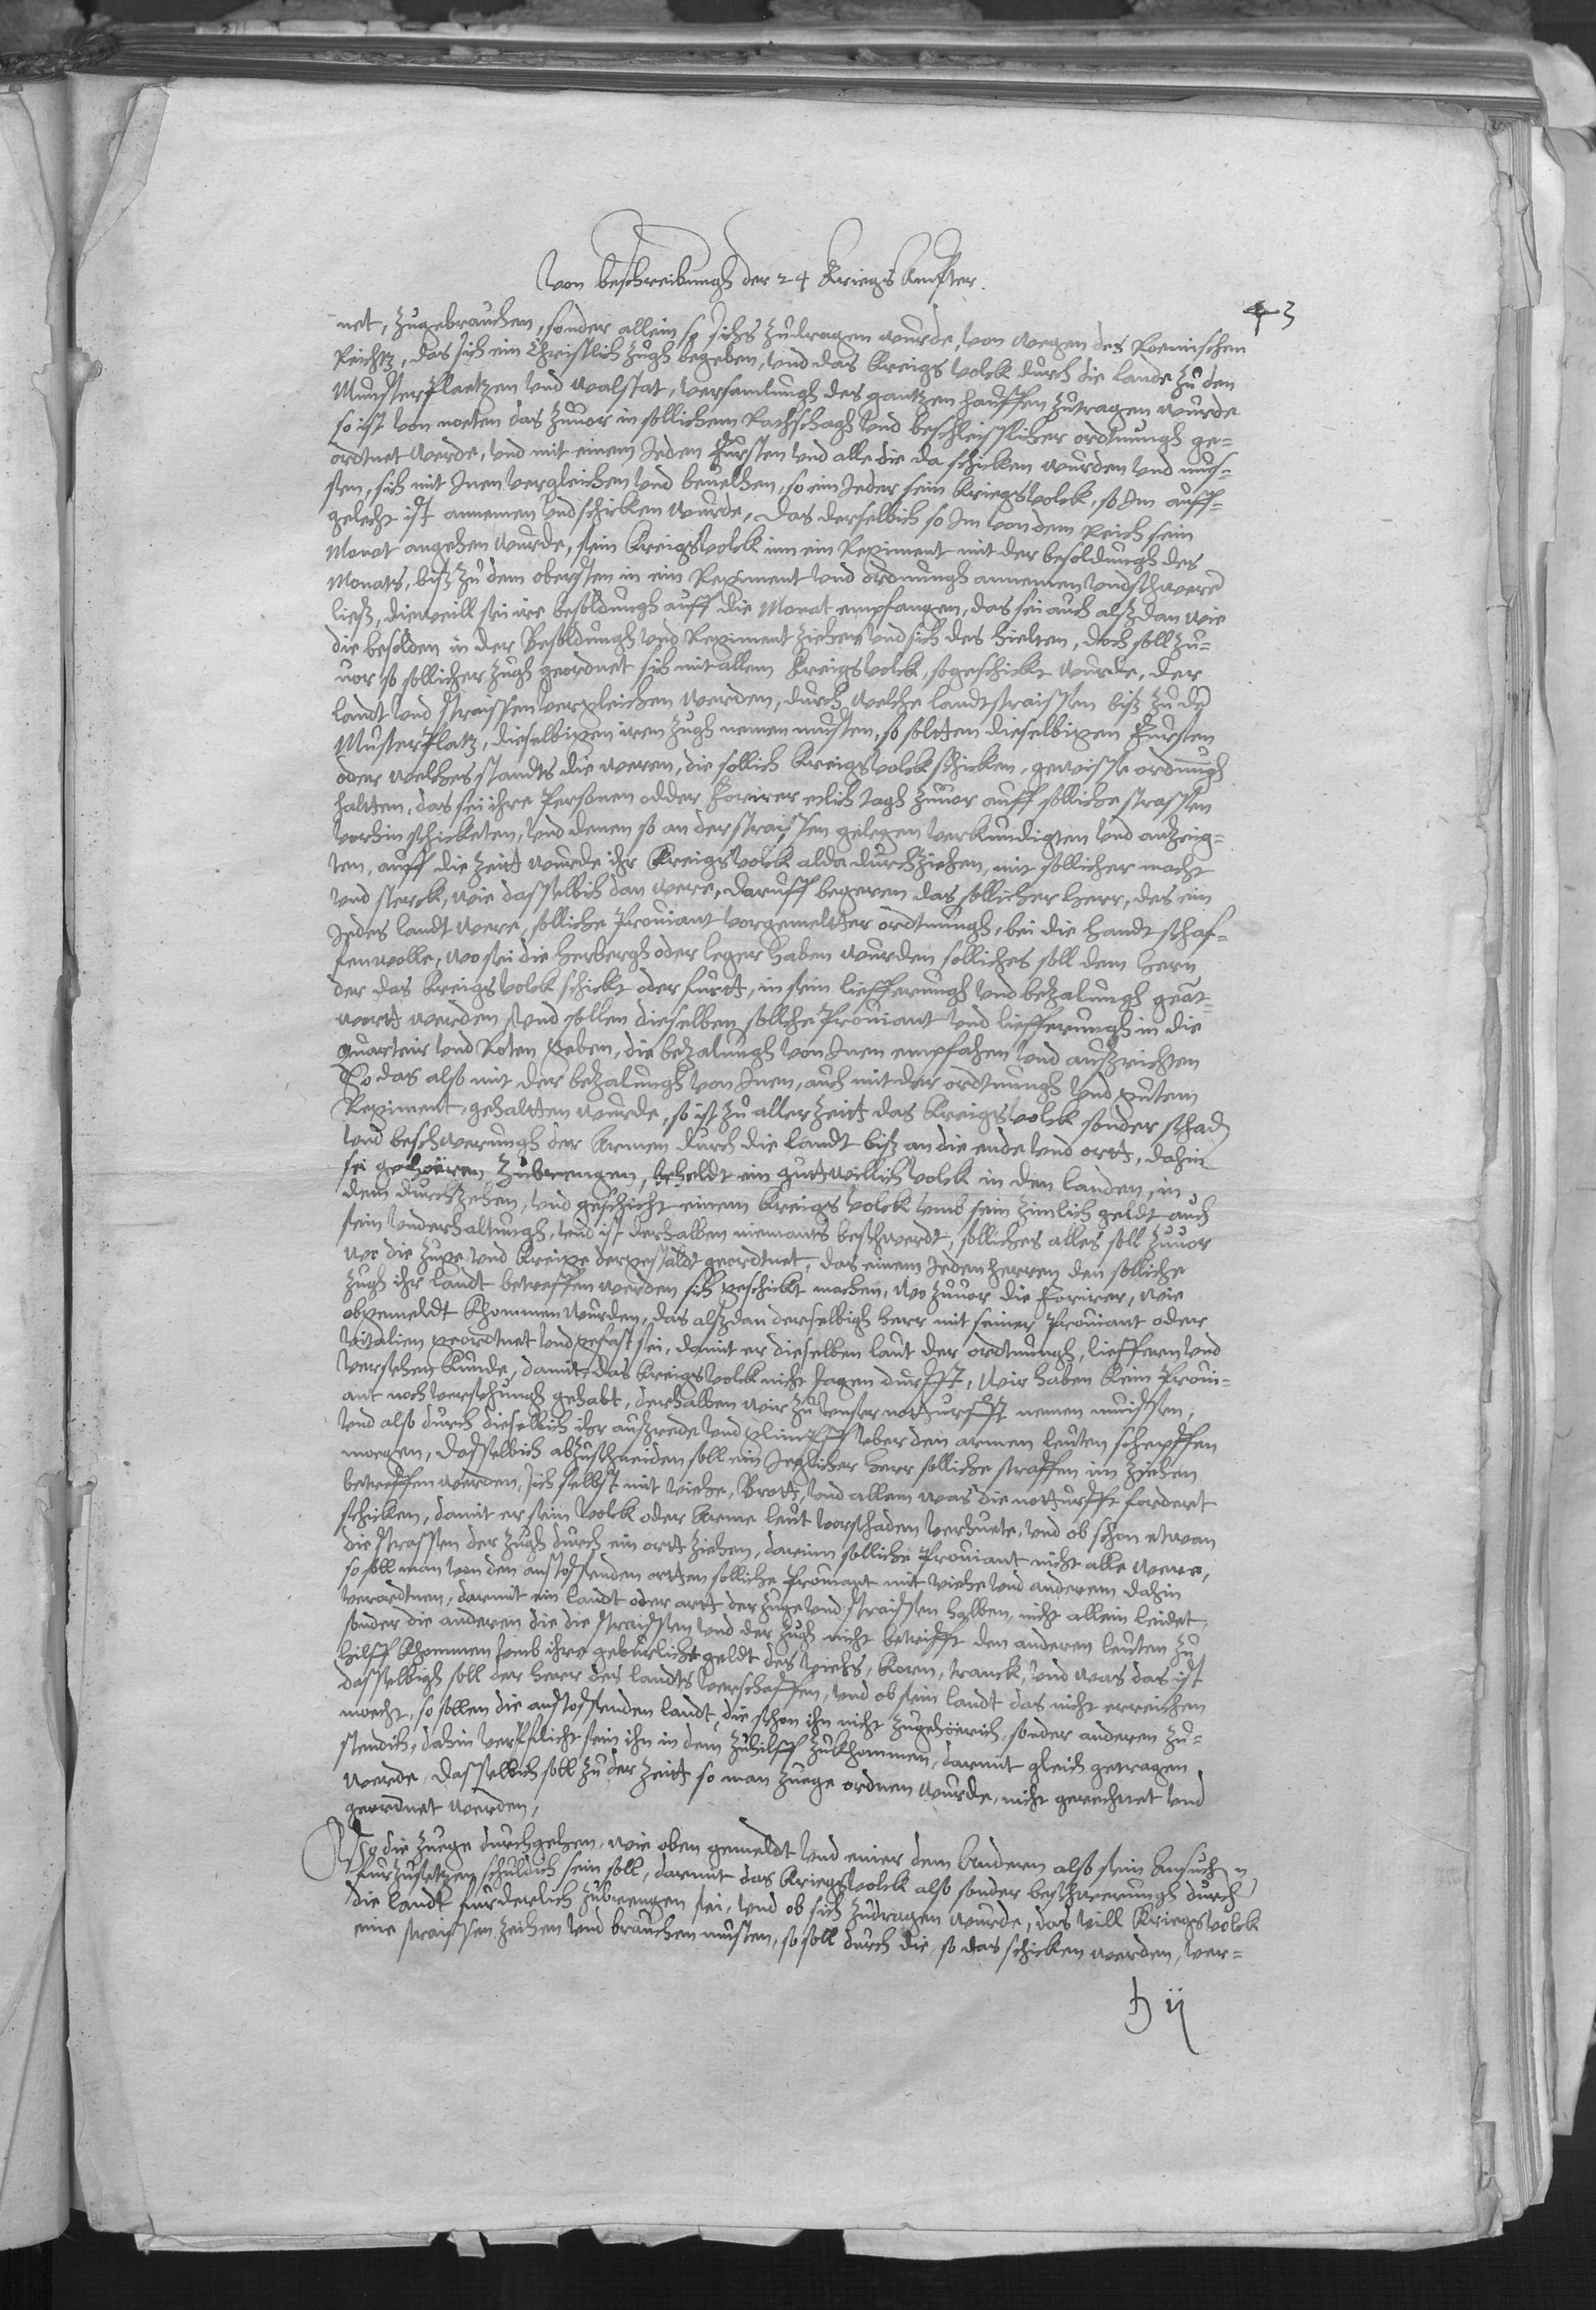 Von beschreibungh der 24 Kriegs Empter.
43
net, zugebrauchen, sonder allein so sichs zudragen wurde, von wegen des Roemischen
Reichs, das sich ein Christlich zugh begeben, und das Kreigs volck durch die lande zu den
Munsterplaetzen und walstat, versamlungh des gantzen hauffen zutragen wurde
so ist von noeten das zuvor in sollichem Rathschagh und beschleisslicher ordtnungh ge-
ordtnet werde, und mit einem Jeden Fursten und alle die da schicken wurden und mus-
sten, sich mit Jnen vergleichen und bevelhen, so ein Jeder sein kriegsvolck, so Jm auff-
gelecht ist annemen und schicken wurde, das derselbich so Jm von dem Reich sein
Monat angehen wurde, sein Kreigsvolck inn ein Regiment mit der besoldungh des
Monats, bisz zu dem obersten in ein Regiment und ordnungh annemen und schwere
liesz, dieweill sei ire besoldungh auff die Monat empfangen, das sei auch alszdan wie
die besolden in der Besoldungh und Regiment ziehen und sich des hielten, doch soll zu-
vor so sollicher zugh geordnet sich mit allem Kreigsvolck, so geschickt wurde, der
landt und straissen vergleichen werden, durch welche landtstraissen bisz zu de
Musterplatz, dieselbigen iren zugh nemen musten, so soltten dieselbigen Fursten
oder welches standts die weren, die sollich Kreigsvolck schicken, gewisse ordnungh
haltten, das sei ihre Personen odder Forirer etlich tagh zuvor auff solliche strassen
vorhin schicketen, und denen so an der straissen gelegen verkundigten und anzeig-
ten, auff die zeitt wurde ihr Kreigsvolck alda durchziehen, mit sollicher macht
und sterck, wie dasselbich dan were, daruff begeren das sollicher herr, des ein
Jedes landt were, solliche Proviant vorgemeltter ordtnungh, bei die handt schaf-
fen wolle, wo sei die herbergh oder leger haben wurden solliches soll dem hern
der das Kreigsvolck schickt oder furtt, in sein liefferungh und bezalungh geat-
wortt werden, und sollen dieselben solche Proviant und liefferungh in die
quarteir und Roten geben, die bezalungh von Jnen empfahen und auszrichten
So das also mit der bezalungh von Jnen, auch mit der ordtnungh und gutem
Regiment, gehaltten wurde, so ist zu aller zeitt das Kreigsvolck sonder schad
und beschwerungh der Armen durch die landt bisz an die ende und ortt, dahin
sei gehoeren zubrengen, beheldt ein guttwillich volck in den landen, in
dem durchzehen, und geschicht einem Kreigsvolck umb sein zimlich geldt auch
sein underhaltungh, und ist derhalben niemants beschwerdt, solliches alles soll zuvor
wo die zuge und Kreige dergestaldt geordtnet, das einem Jeden herren den solliche
zugh ihr landt betreffen werden sich geschickt machen, wo zuvor die Forirer, wie
obgemeldt khommen wurden, das alszdan derselbigh herr mit seiner Proviant oder
vitalien geordtnet und gefast sei, damit er dieselben laut der ordtnungh, lieffern und
versehen kunde, damit das Kreigsvolck nicht sagen durfft, wir haben kein Provi-
ant noch versehungh gehabt, derhalben wir zu unser notturfft nemen muissen,
und also durch dieselbich ihr auszrede und glimpff uber den armen leuten schepffen
moegen, dasselbich abzuschneiden soll ein Jeglicher herr solliche strassen im ziehen
betreffen werden, sich selbst mit viehe, Brott, und allem was die notturfft forderet
schicken, damit er sein volck oder Arme leut vor schaden verhuete, und ob schon etwan
die strassen der zugh durch ein ortt ziehen, darinn solliche Proviant nicht alle were,
so soll man von den anstossenden ortten solliche Proviant mit viehe und anderem dahin
verordtnen, darmit ein landt oder ortt der zuge und straissen halben, nicht allein leidet,
sonder die anderen die die straissen und der zugh nicht betrifft den anderen leuten zu
hilff khommen umb ihre geburlicht geldt des viehs, korn, tranck, und was das ist
dasselbigh soll der herr des landts verschaffen, und ob sein landt das nicht erreichen
moecht, so sollen die anstossenden landt, die schon ihn nicht zugehoerich, sonder anderen zu-
stendich, dahin verpflicht sein ihn in dem zuhilff zukhommen, darmit gleich getragen
werde, dasselbich soll zu der zeitt so man zuege ordnen wurde, nicht gerechnet und
geordnet werden,
So die zuege durchgehen, wie oben gemeldt und einer dem Anderen also sein Ansuchn
furzusetzen schuldich sein soll, darmit das Kriegsvolck also sonder beschwerungh durch
die landt furderlich zubrengen sei, und ob sich zudragen wurde, das vill Kriegsvolck
eine straissen zeihen und brauchen musten, so soll durch die, so das schicken werden, ver-
h ij